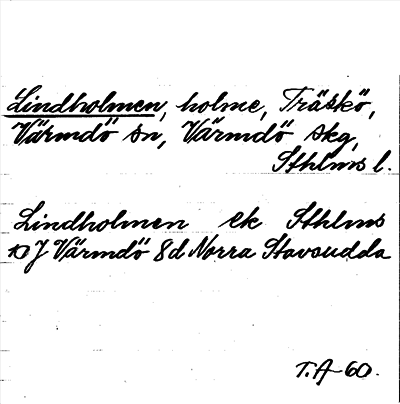 Lindholmen, holme, Träskö,
Värmdö sn, Värmdö skg,
Sthlms l.
Lindholmen ek Sthlms
10J Värmdö 8d Norra Stavsudda
T.A-60.